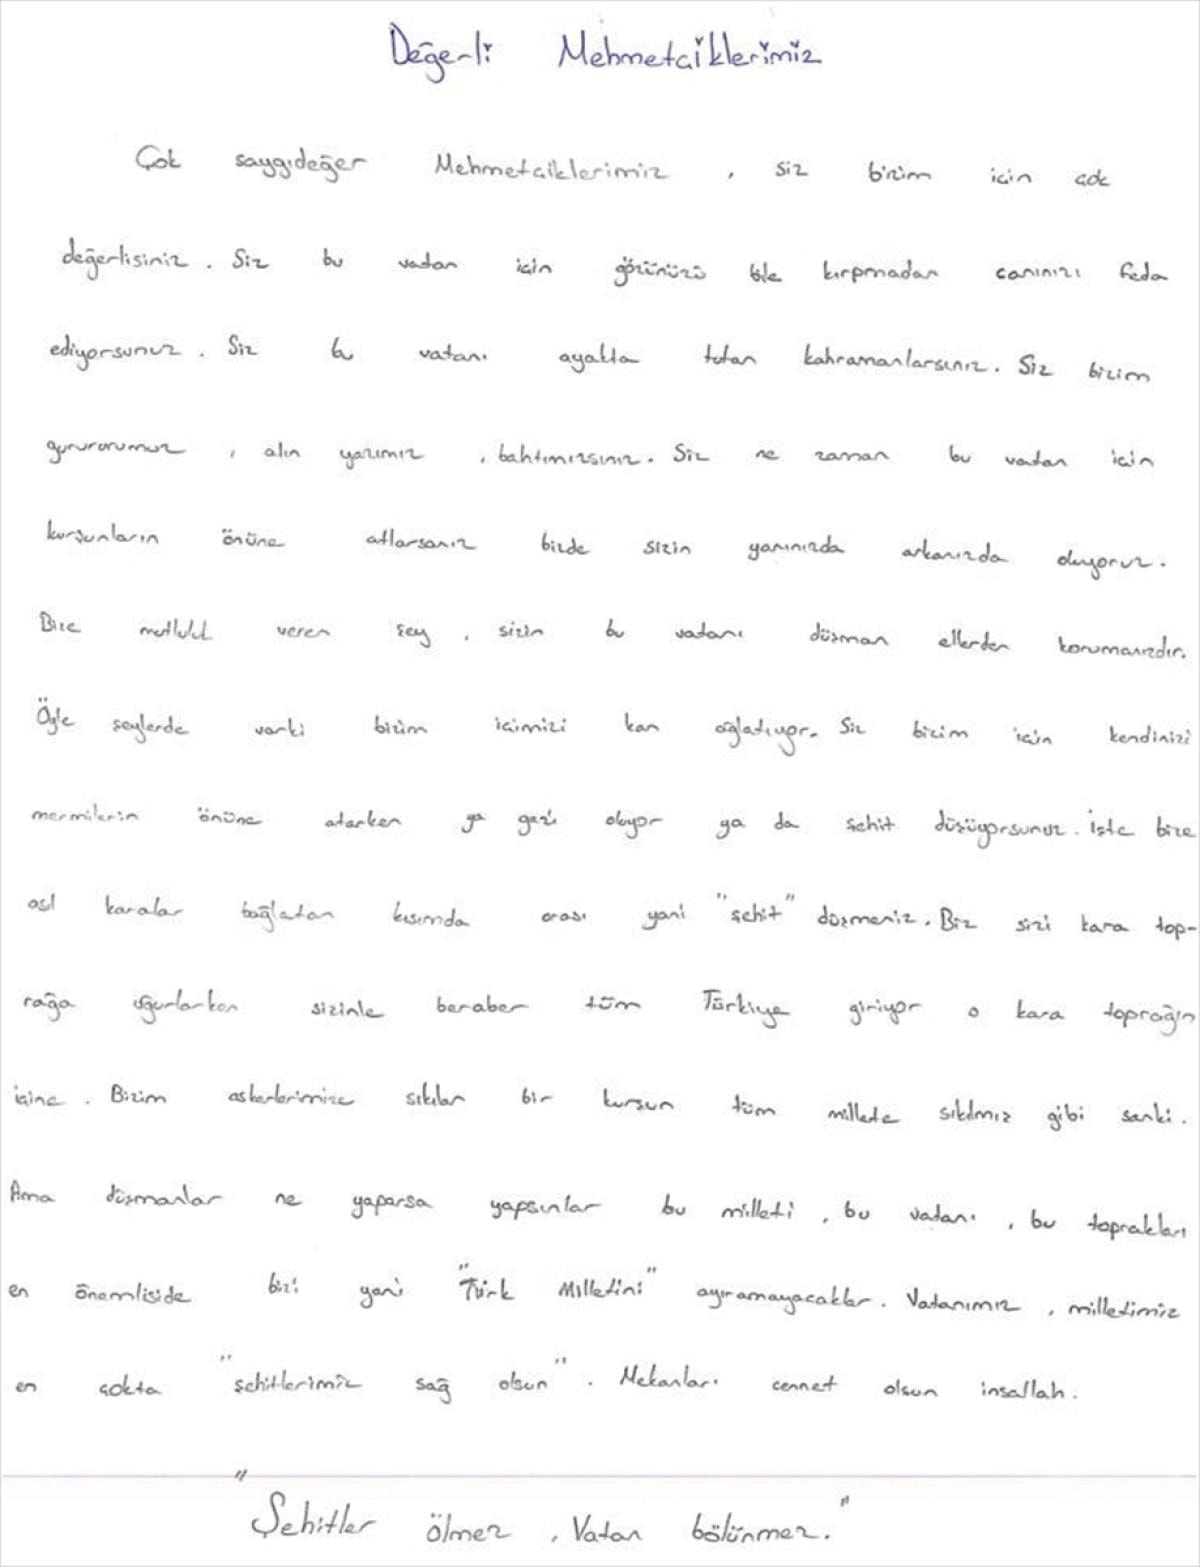 Değerli Mehmetçiklerimiz
Çok saygıdeğer Mehmetçiklerimiz , siz bizim için çok
değerlisiniz . Siz bu vatan için gözünüzü bile kırpmadan canınızı feda
ediyorsunuz . Siz bu vatanı ayakta tutan kahramanlarsınız . Siz bizim
gururumuz , alın yazımız , bahtımızsınız . Siz ne zaman bu vatan için
kurşunların önüne atlarsanız bizde sizin yanınızda arkanızda oluyoruz .
Bize mutluluk veren şey , sizin bu vatanı düşman ellerden korumanızdır.
Öyle şeylerde varki bizim içimizi kan ağlatıyor. Siz bizim için kendinizi
mermilerin önüne atarken ya gazi oluyor ya da şehit düşüyorsunuz . İşte bize
asıl karalar bağlatan kısımda orası yani "şehit" düşmeniz . Biz sizi kara top-
rağa uğurlarken sizinle beraber tüm Türkiye giriyor o kara toprağın
içine . Bizim askerlerimize sıkılan bir kurşun tüm millete sıkılmış gibi sanki .
Ama düşmanlar ne yaparsa yapsınlar bu milleti , bu vatanı , bu toprakları
en önemliside bizi yani "Türk Milletini" ayıramayacaklar . Vatanımız , milletimiz
en çokta "şehitlerimiz sağ olsun" . Mekanları cennet olsun inşallah .
"Şehitler ölmez , Vatan bölünmez."